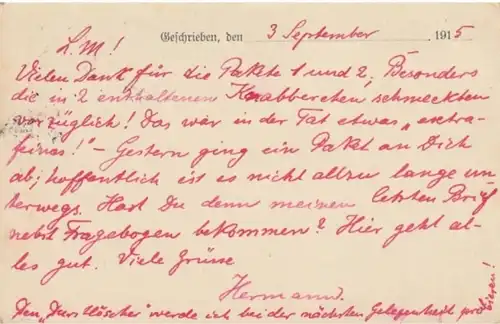 Geschrieben, den 3 September 1915
L. M!
Vielen Dank für die Pakete 1 und 2; Besonders
die in 2 enthaltenen Knabberchen schmeckten
vorzüglich! Das war in der Tat etwas „extra-
feines!" – Gestern ging ein Paket an Dich
ab; hoffentlich ist es nicht allzu lange un-
terwegs. Hast Du denn meinen letzten Brief
nebst Fragebogen bekommen? Hier geht al-
les gut. Viele Grüsse
Hermann.
Den „Durstlöscher" werde ich bei der nächsten Gelegenheit pro-
bieren!